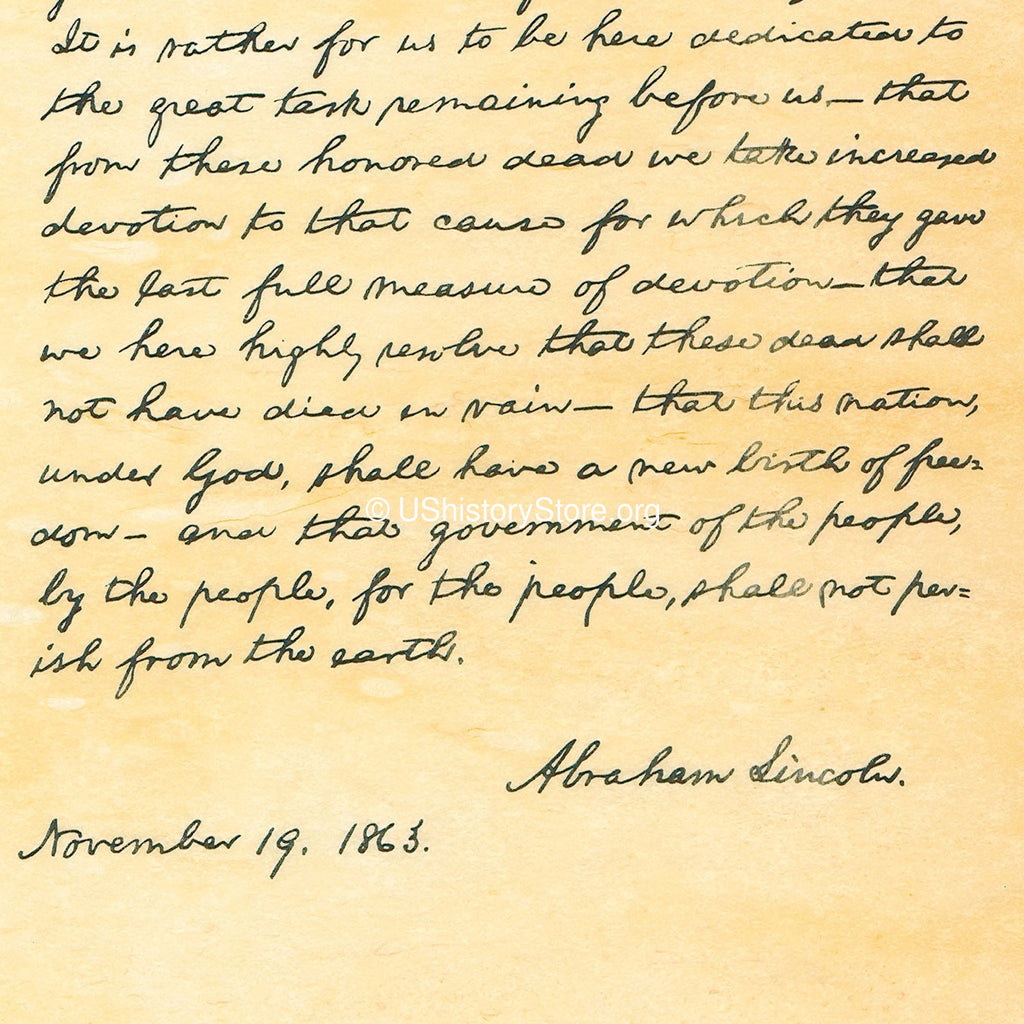 It is rather for us to be here dedicated to
the great task remaining before us — that
from these honored dead we take increased
devotion to that cause for which they gave
the last full measure of devotion — that
we here highly resolve that these dead shall
not have died in vain — that this nation,
under God, shall have a new birth of free=
© UShistoryStore.org
dom — and that government of the people,
by the people, for the people, shall not per=
ish from the earth.
Abraham Lincoln.
November 19. 1863.